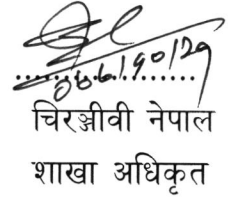 ०७६/१०/२१
चिरञ्जीवी नेपाल
शाखा अधिकृत